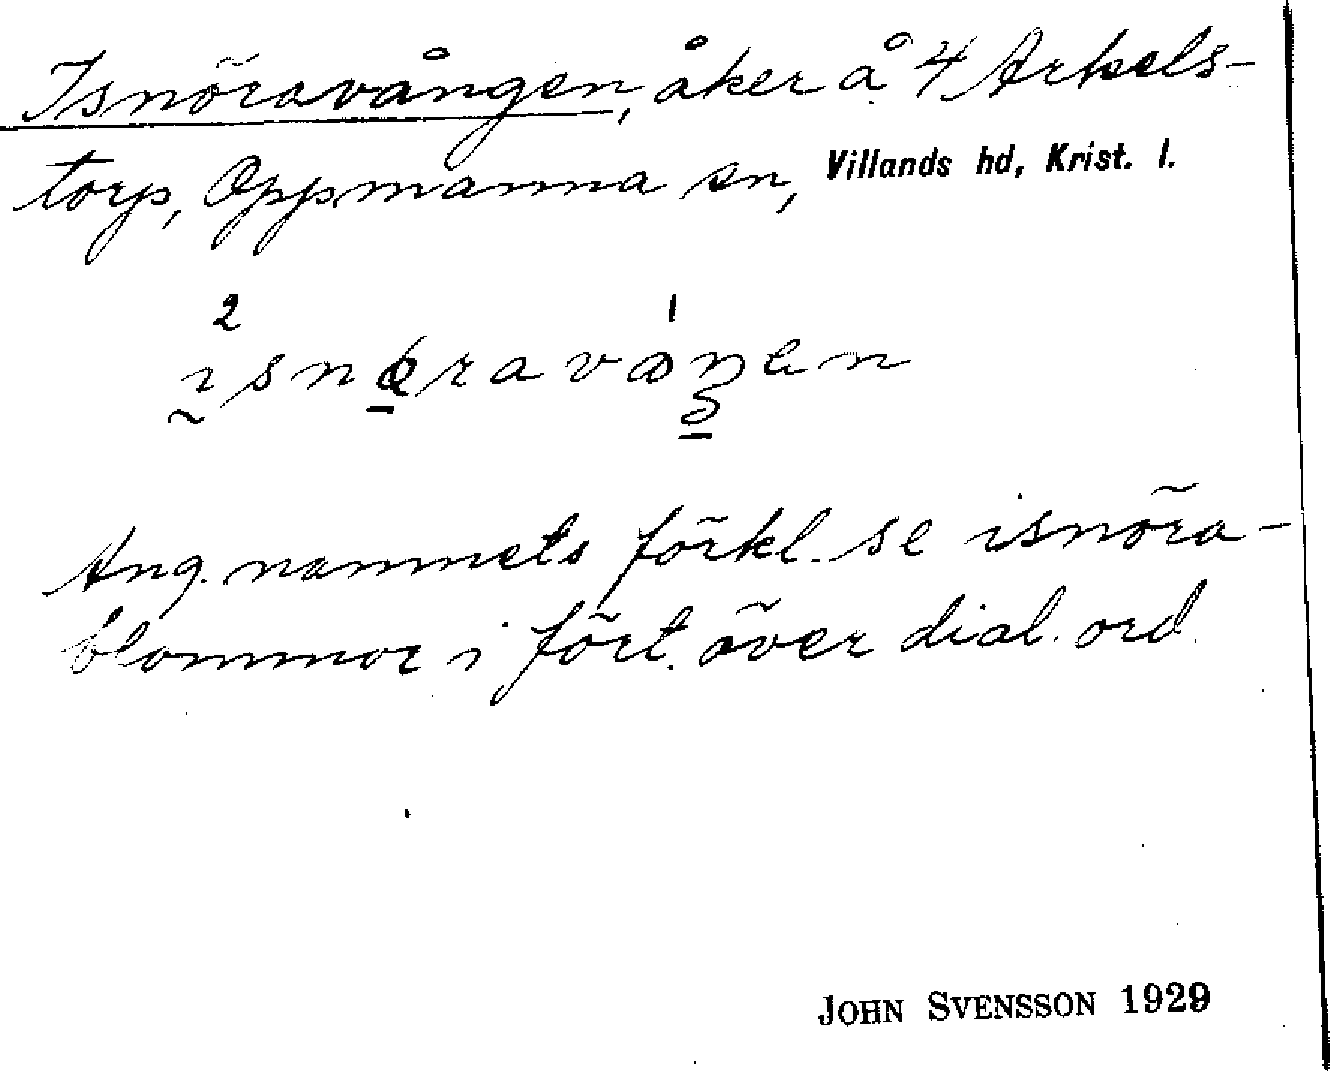 Isnöravången, åker å 4 Arkels-
torp, Oppmanna sn, Villands hd, Krist. l.
2 1
Ang. namnets förkl. se isnöra-
blommor i fört. över dial. ord.
JOHN SVENSSON 1929